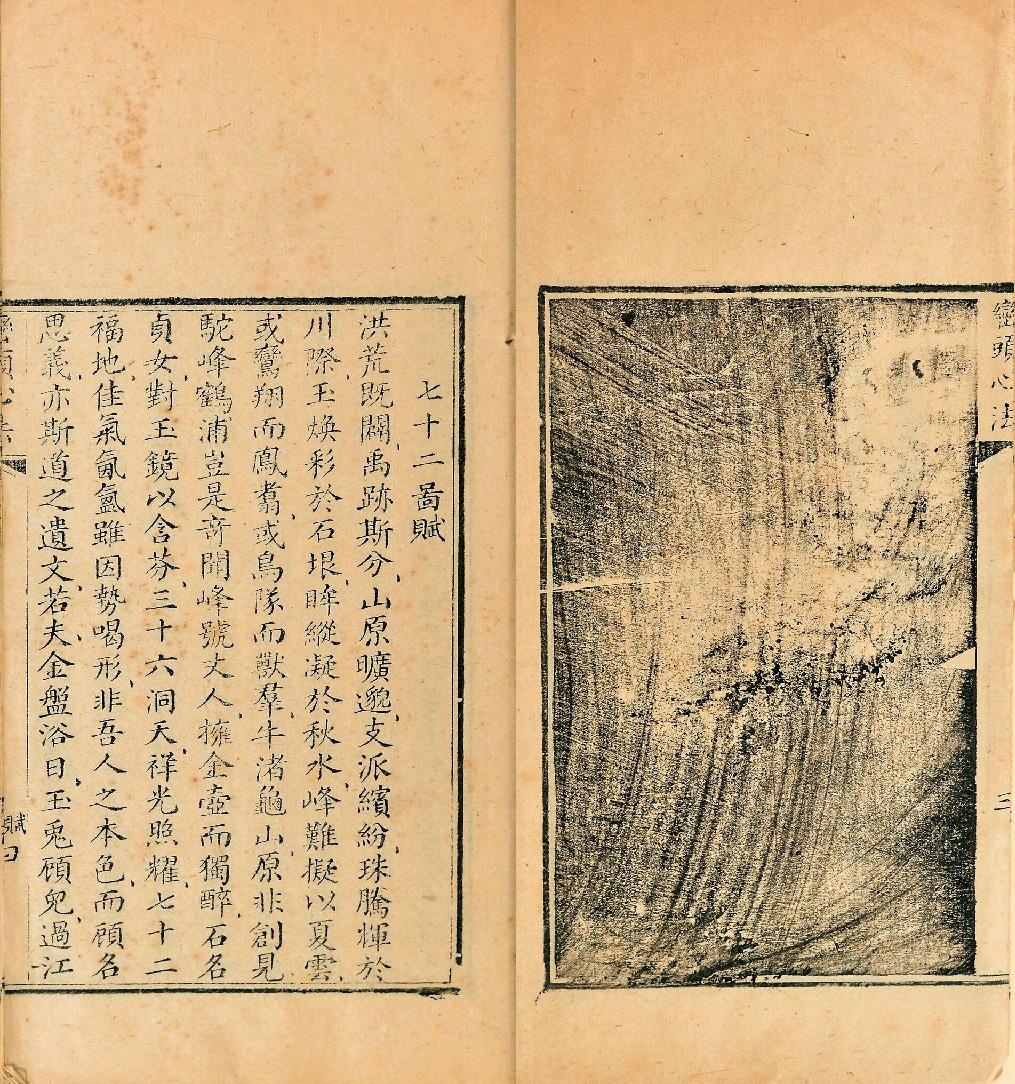 巒頭心法
三
七十二啚賦
洪荒既闢、禹跡斯分、山原曠邈、支派繽紛、珠騰輝於
川際、玉煥彩於石垠、眸縱凝於秋水、峰難擬以夏雲、
或鸞翔而鳳翥、或鳥隊而獸羣、牛渚龜山、原非創見
駝峰鶴浦、豈是奇聞、峰號丈人、擁金壺而獨醉、石名
貞女、對玉鏡以含芬、三十六洞天、祥光照耀、七十二
福地、佳氣氤氳、雖因勢喝形、非吾人之本色、而顧名
思義、亦斯道之遺文、若夫金盤浴日、玉兎顧兒、過江